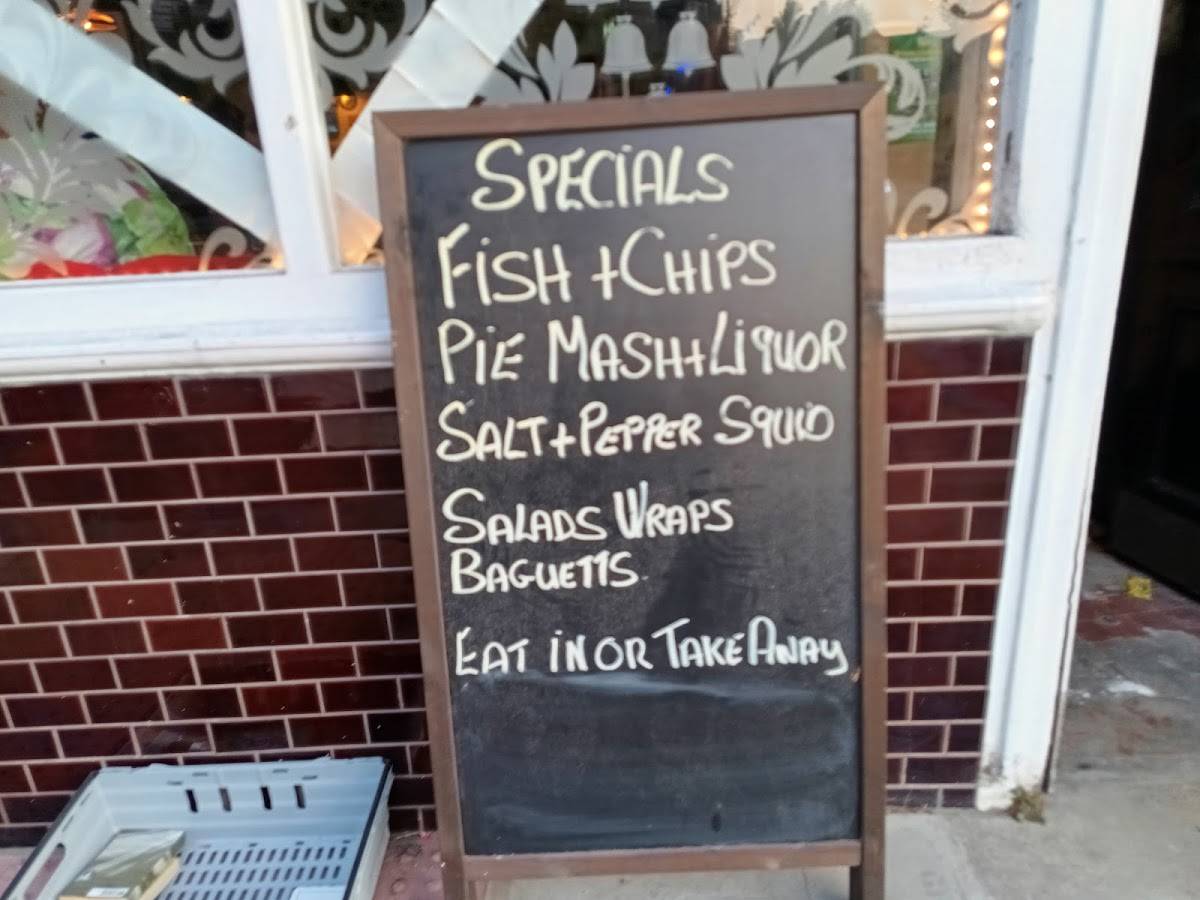 SPECIALS
FISH + CHIPS
PIE MASH + LIQUOR
SALT + PEPPER SQUID
SALADS WRAPS
BAGUETTS
EAT IN OR TAKE AWAY